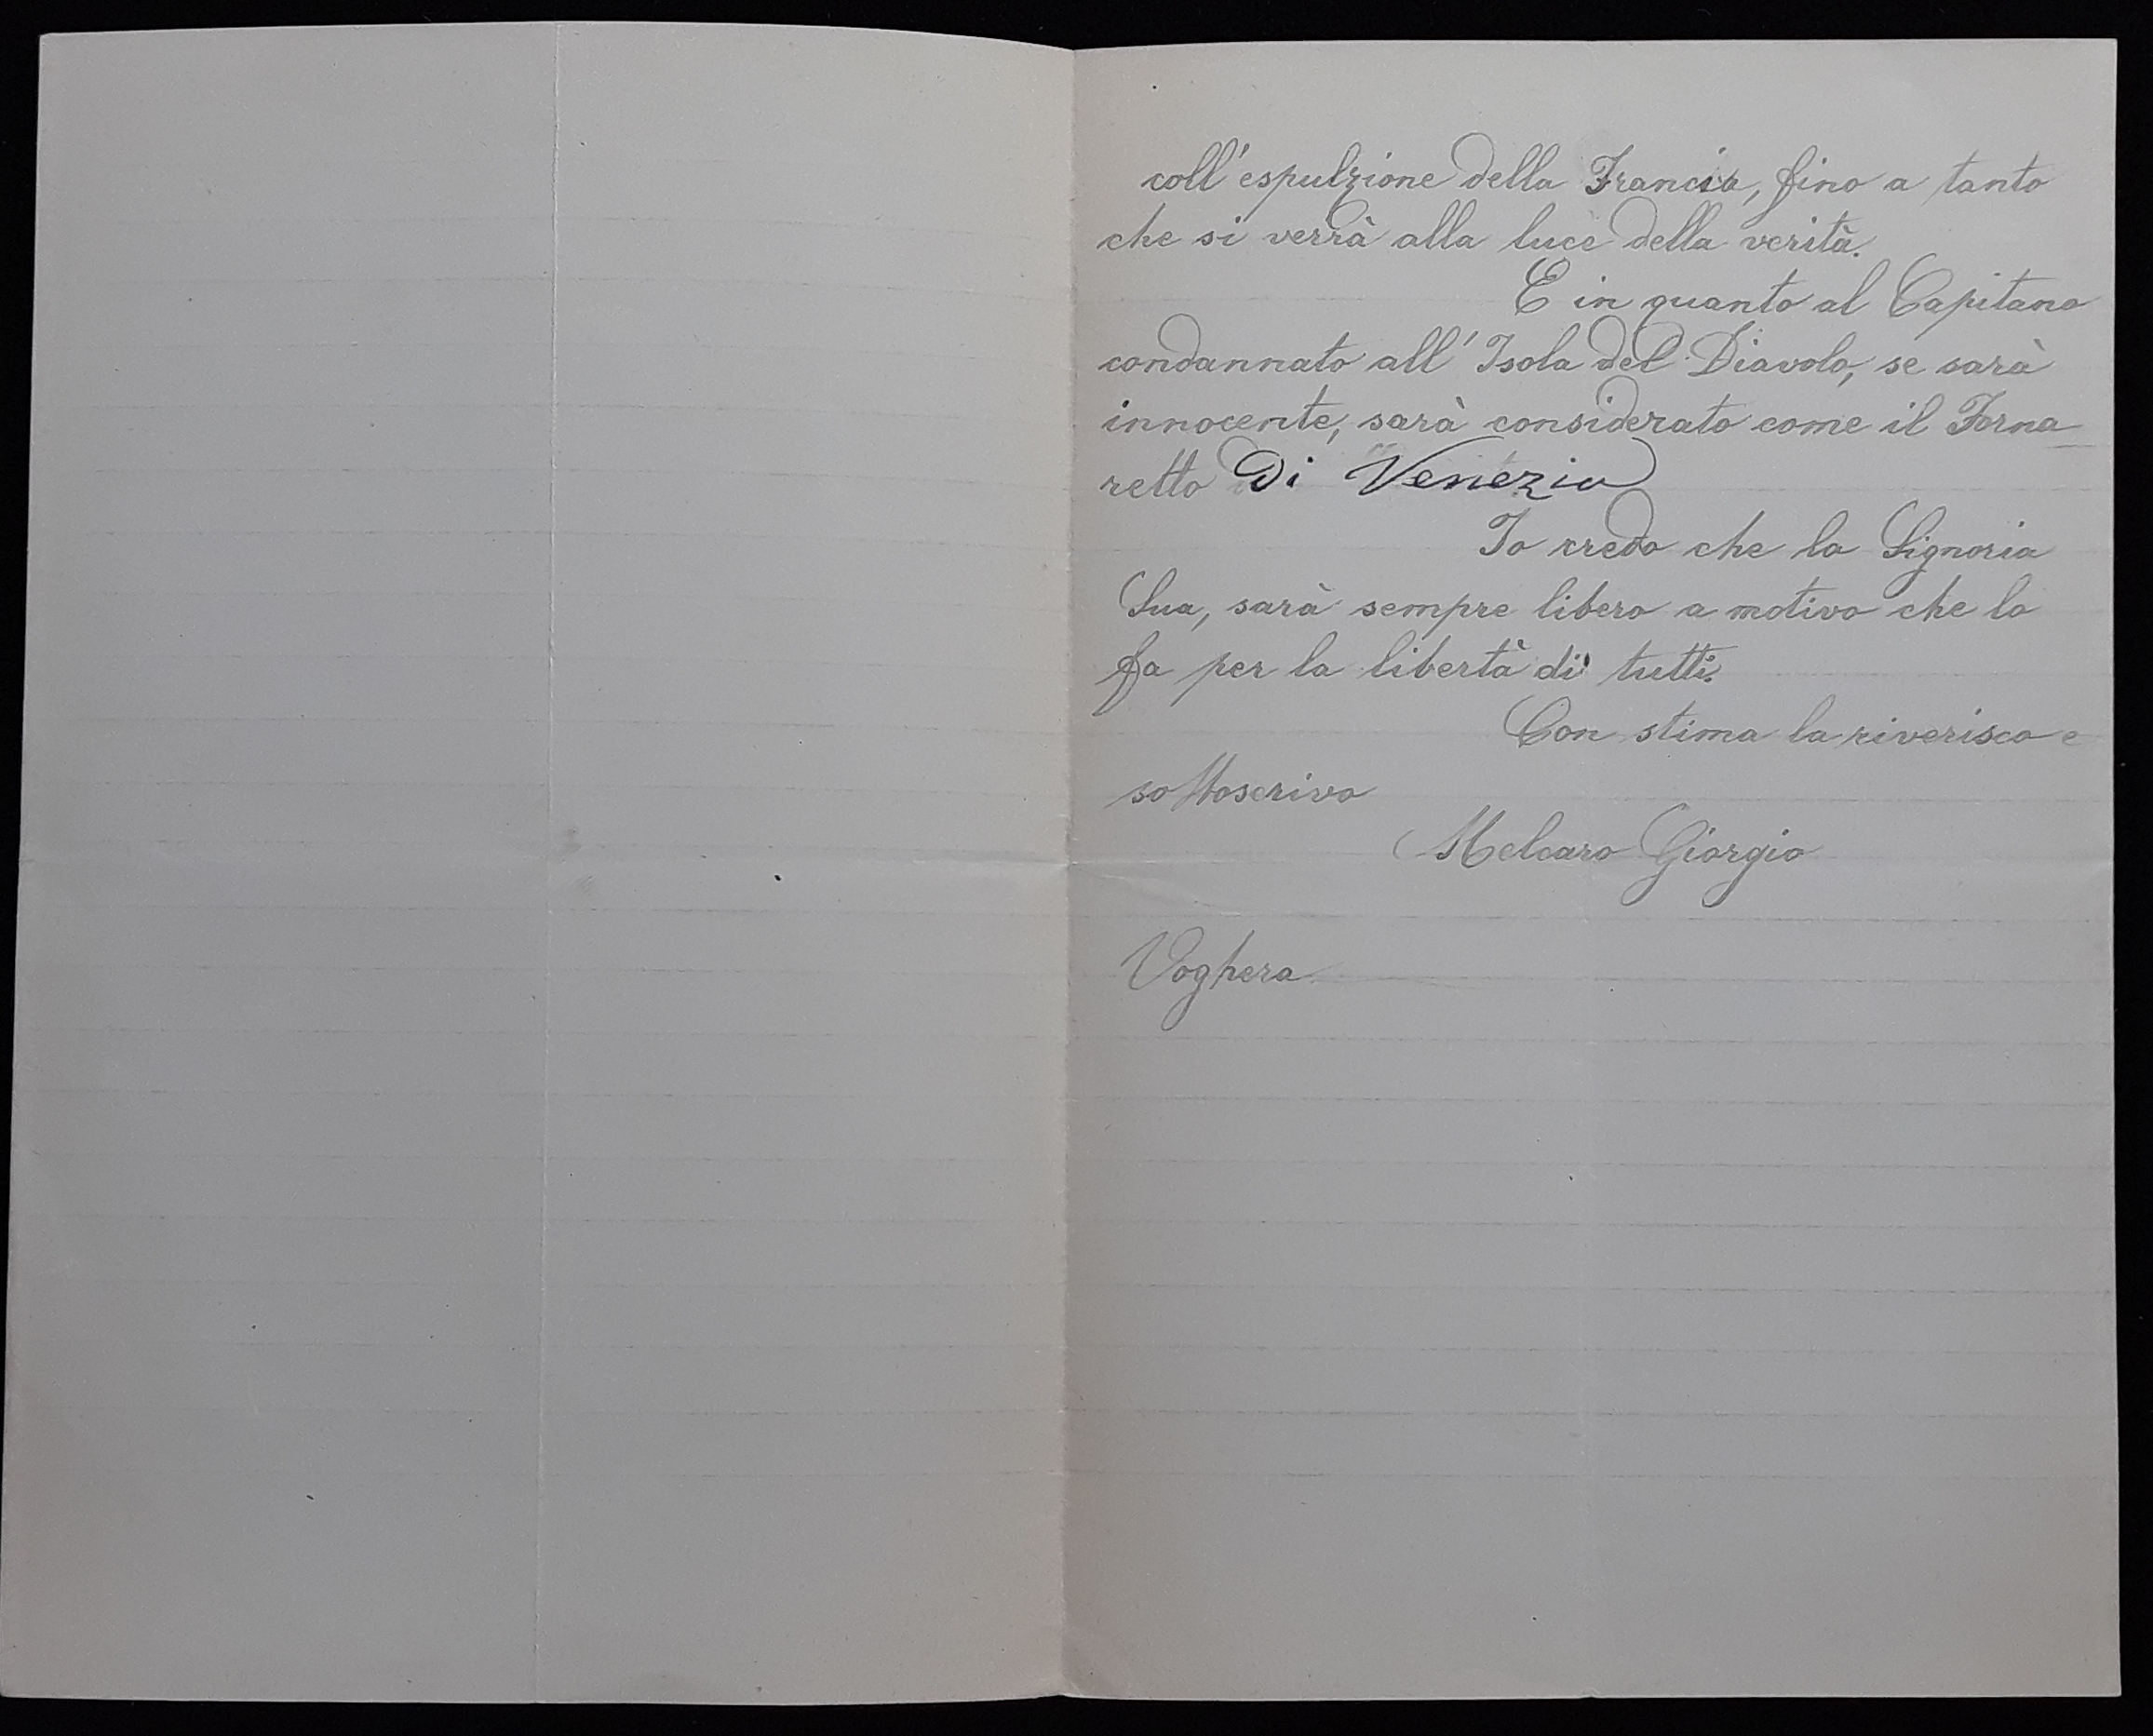 coll' espulzione della Francia, fino a tanto
che si verrà alla luce della verità.
E in quanto al Capitano
condannato all' Isola del Diavolo, se sarà
innocente, sarà considerato come il Forna
retto Di Venezia
Io credo che la Signoria
Sua, sarà sempre libero a motivo che lo
fa per la libertà di tutti.
Con stima la riverisco e
sottoscrivo
Melcaro Giorgio
Voghera